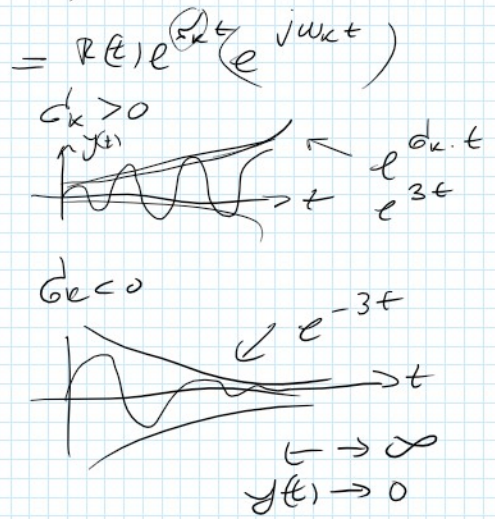 = R(t) e^{σ_k t} (e^{jω_k t})
σ_k > 0
y(t)
e^{σ_k · t}
t
e^{3t}
σ_k < 0
e^{-3t}
t
t → ∞
y(t) → 0